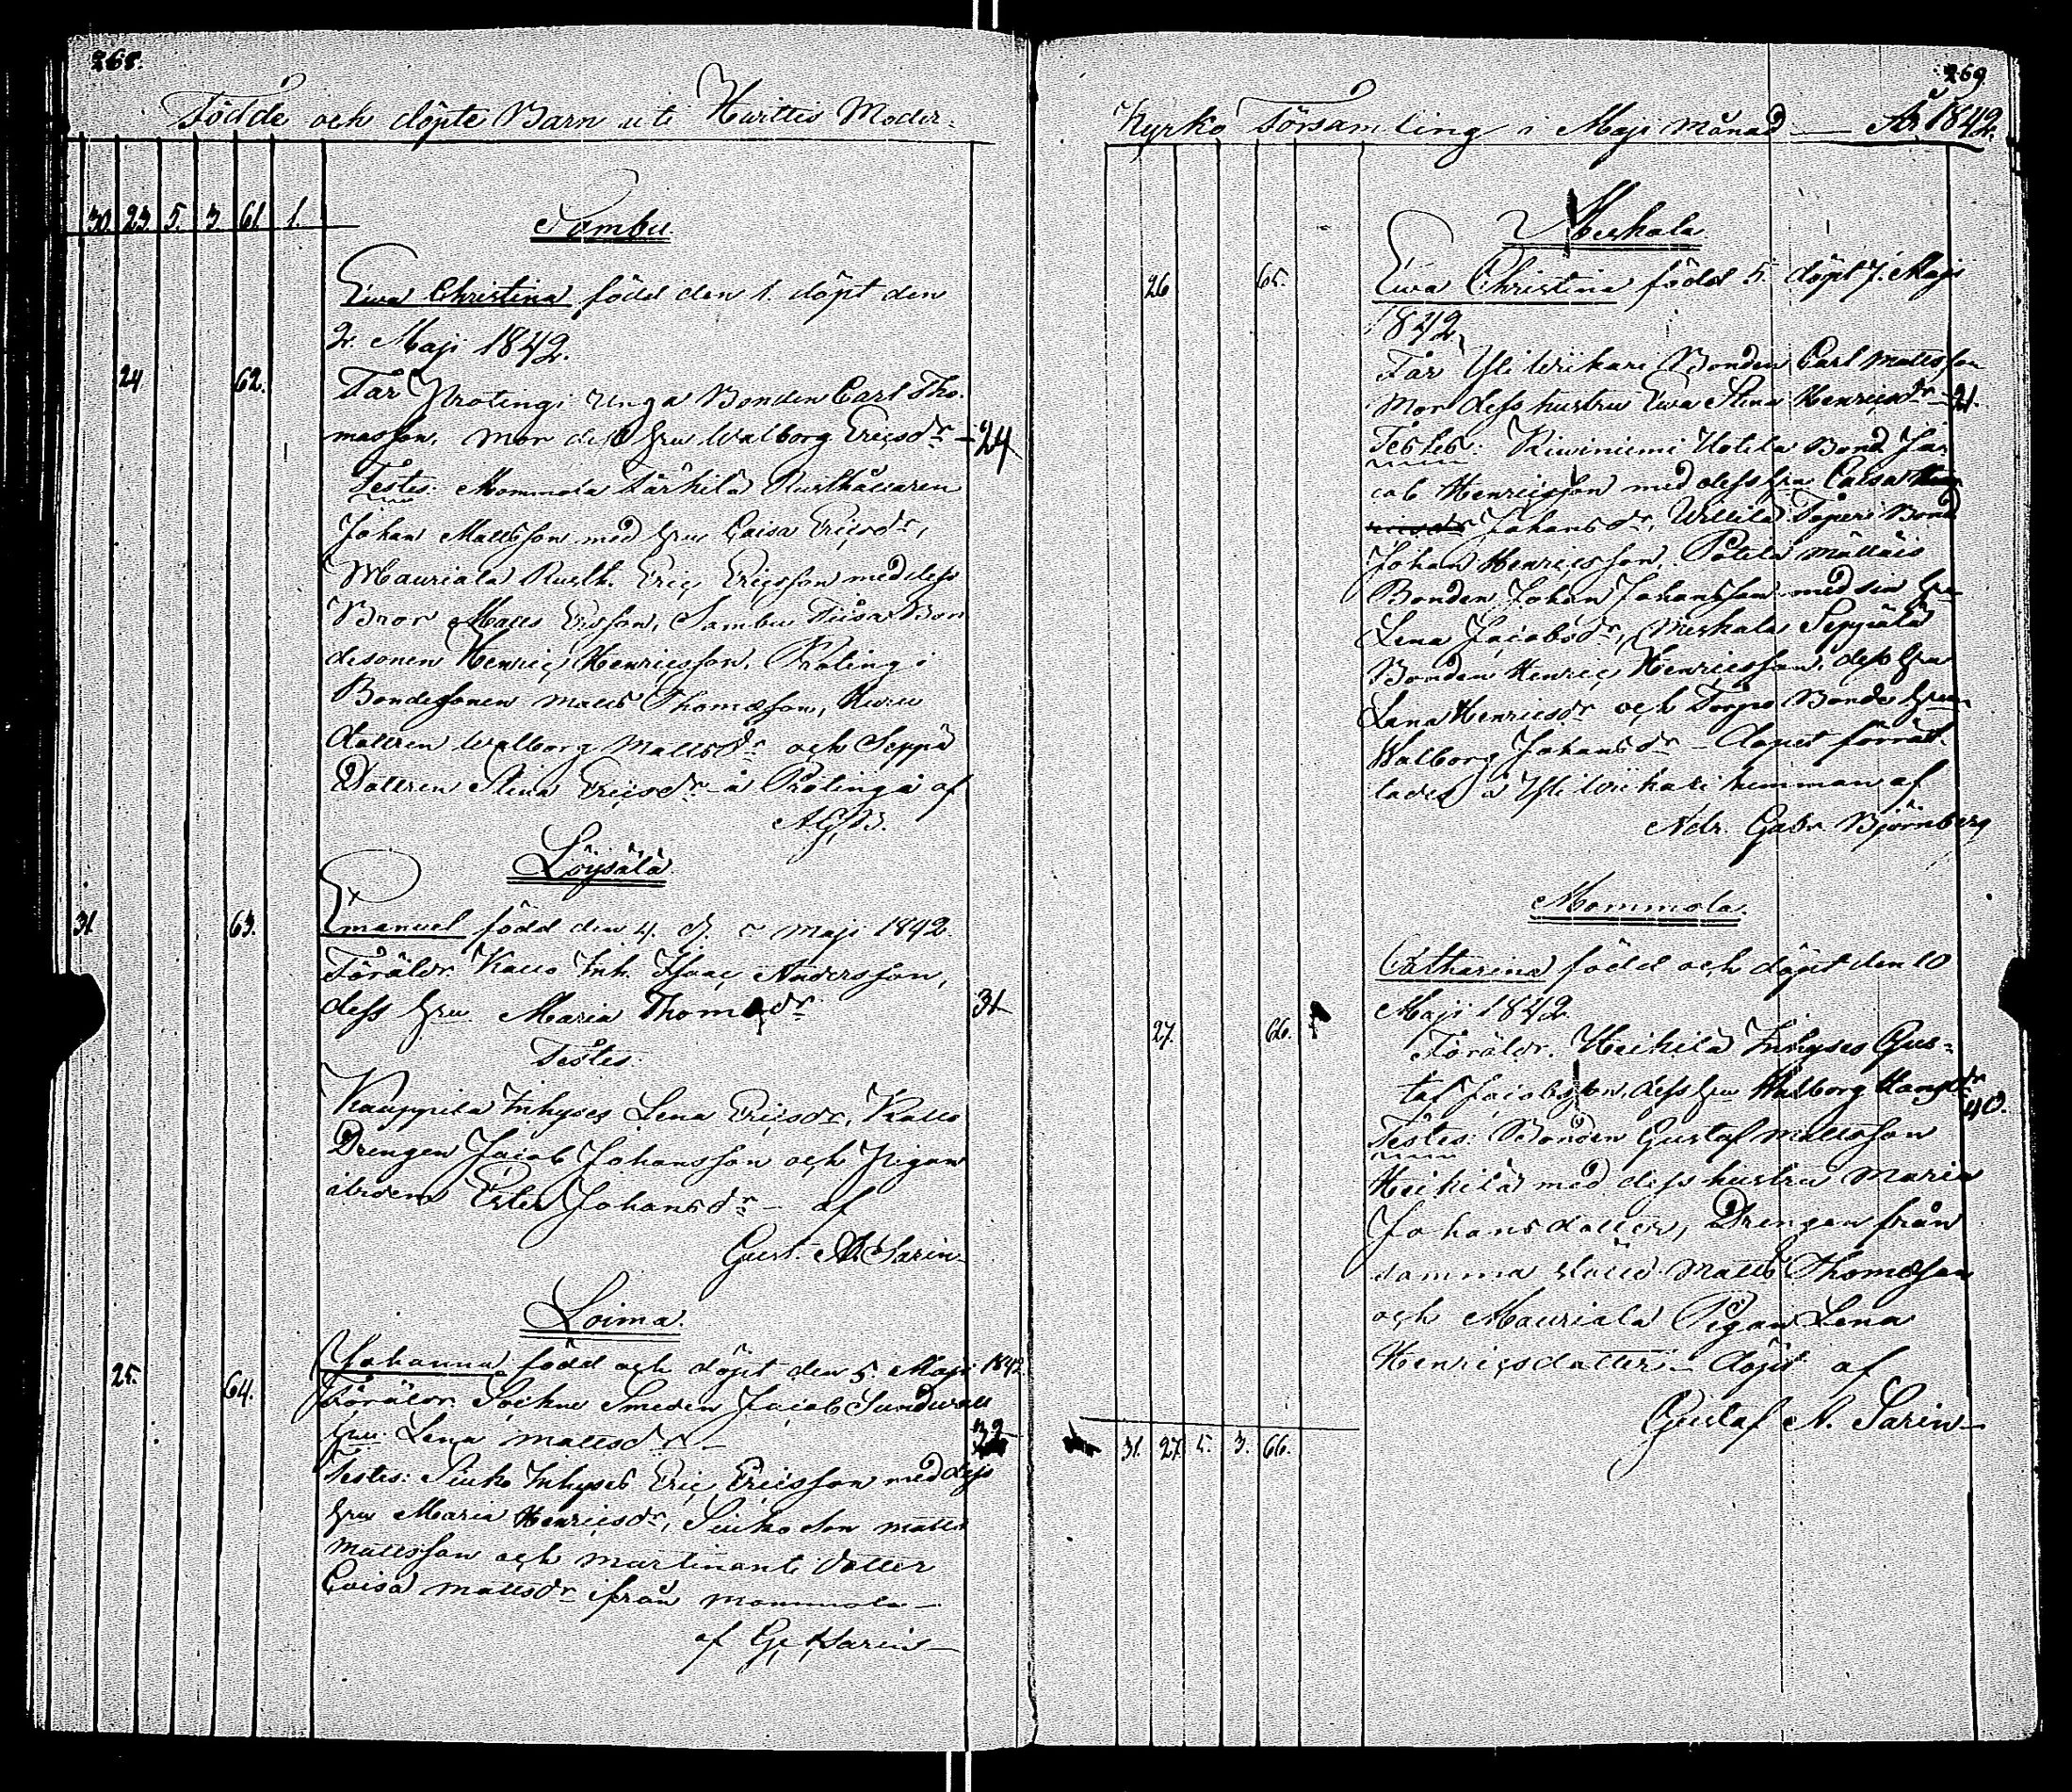 268.
Födde och döpte Barn uti Huittis Moder-
30. 23. 5. 3. 61. 1.
Sambu
Ewa Christina född den 1. döpt den
2. Maji 1842.
24 62.
Far Protingi unga Bonden Carl Tho-
masson, Mor dess hru Walborg Ericsdr – 24
Testes: Mommola Färkilä Rusthållaren
Johan Mattsson med hru Caisa Ericsdr,
Mauriala Rusth. Eric Ericsson med dess
Bror Matts Ersson, Sambu Bon
desonen Henric Henricsson, Protingi
Bondesonen Matts Thomæson,
dottren Walborg Mattsdr och Seppä
Dottren Stina Ericsdr å Protingi af
A.G.B.
Löysälä
31. 63.
Emanuel född den 4. d. maji 1842.
Föräldr. Inh. Isaac Andersson,
dess hru Maria Thomædr 31
Testes:
Kauppila Inhyses Lena Ericsdr,
Drengen Jacob Johansson och Pigan
Ester Johansdr – af
Gust. N. Sarin
Loima
25. 64.
Johanna född och döpt den 5. Maji 1842.
Föräldr. Sockne Smeden Jacob Sundwall
hru Lena Mattsdr – 32
Testes: Inhyses Eric Ericsson med dess
hru Maria Henricsdr, son Matts
Mattsson och Martinanti dotter
Caisa Mattsdr ifrån Mommola –
af G. N. Sarin
269
Kyrko Församling i Maji Månad — År 1842.
Meskala
26 65.
Ewa Christina född 5. döpt 7. Maji
1842.
Far Yli Wikari Bonden Carl Mattsson
Mor dess hustru Ewa Stina Henricsdr – 21.
Testes: Kiwiniemi Hotila Bond. Ja-
cob Henricsson med dess hru Caisa
Johansdr, Willilä Bond.
Johan Henricsson,
Bonden Johan Johansson med sin hru
Lena Jacobsdr, Meskala Seppälä
Bonden Henric Henricsson, dess hru
Lena Henricsdr och Torpo Bonde hrun
Walborg Johansdr – dopet förrät-
tades å Yli Wikari hemman af
Adr. Gabr. Björnberg
Mommola.
Catharina född och döpt den 10
Maji 1842.
27. 66.
Föräldr. Heikilä Inhyses Gus-
taf Jacobsson, dess hru Walborg
40.
Testes: Bonden Gustaf Mattsson
Heikilä med dess hustru Maria
Johansdotter, Drengen från
samma ställe Matts Thomæson
och Mauriala Pigan Lena
Henricsdotter – döpt af
Gustaf N. Sarin
31. 27. 5. 3. 66.